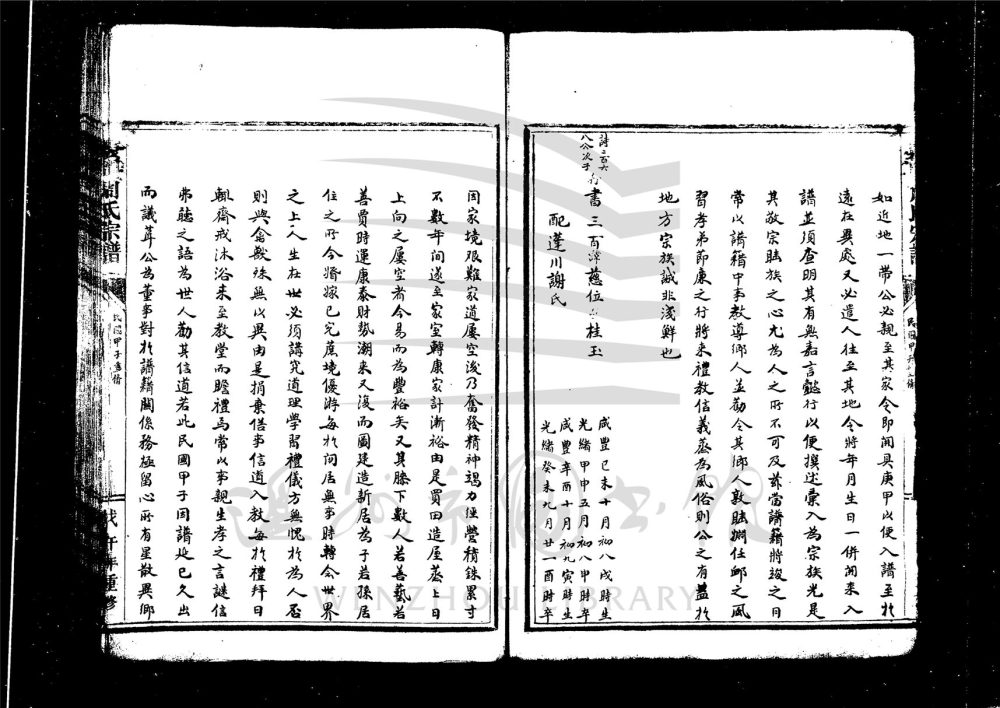 如近地一帶公必親至其家令即開具庚甲以便入譜至於
遠在異處又必遣人往至其地令將年月生日一併開來入
譜並須查明其有無嘉言懿行以便撰述彙入為宗族光是
其敬宗睦族之心尤為人之所不可及茲當譜籍將竣之日
常以譜籍中事教導鄉人並勸令其鄉人敦睦婣任卹之風
習孝弟節廉之行將來禮教信義蒸為風俗則公之有益於
地方宗族誠非淺鮮也
詩二百六
八公次子
書三百 慈位 桂玉
咸豐己未十月初八戌時生
光緒甲申五月初八甲時卒
配蓬川謝氏
咸豐辛酉十月初九寅時生
光緒癸未九月廿一酉時卒
因家境艱難家道屢空後乃奮發精神竭力經營積銖累寸
不數年間遂至家室轉康家計漸裕由是買田造屋蒸上日
上向之屢空者今易而為豐裕矣又其膝下數人若善藝若
善賈時運康泰財勢潮來又復而圖建造新居為子若孫居
住之所今婚嫁已完蔗境優游每於閒居無事時轉念世界
之上人生在世必須講究道理學習禮儀方無愧於為人否
則與禽獸殊無以異由是捐棄俗事信道入教每於禮拜日
輒齋戒沐浴來至教堂而瞻禮焉常以事親生孝之言謎信
弗聽之語為世人勸其信道若此民國甲子因譜延已久出
而議葺公為董事對於譜籍關係務極留心所有星散異鄉
閭氏宗譜
民國甲子重修
戊午年重修
WENZHOU LIBRARY